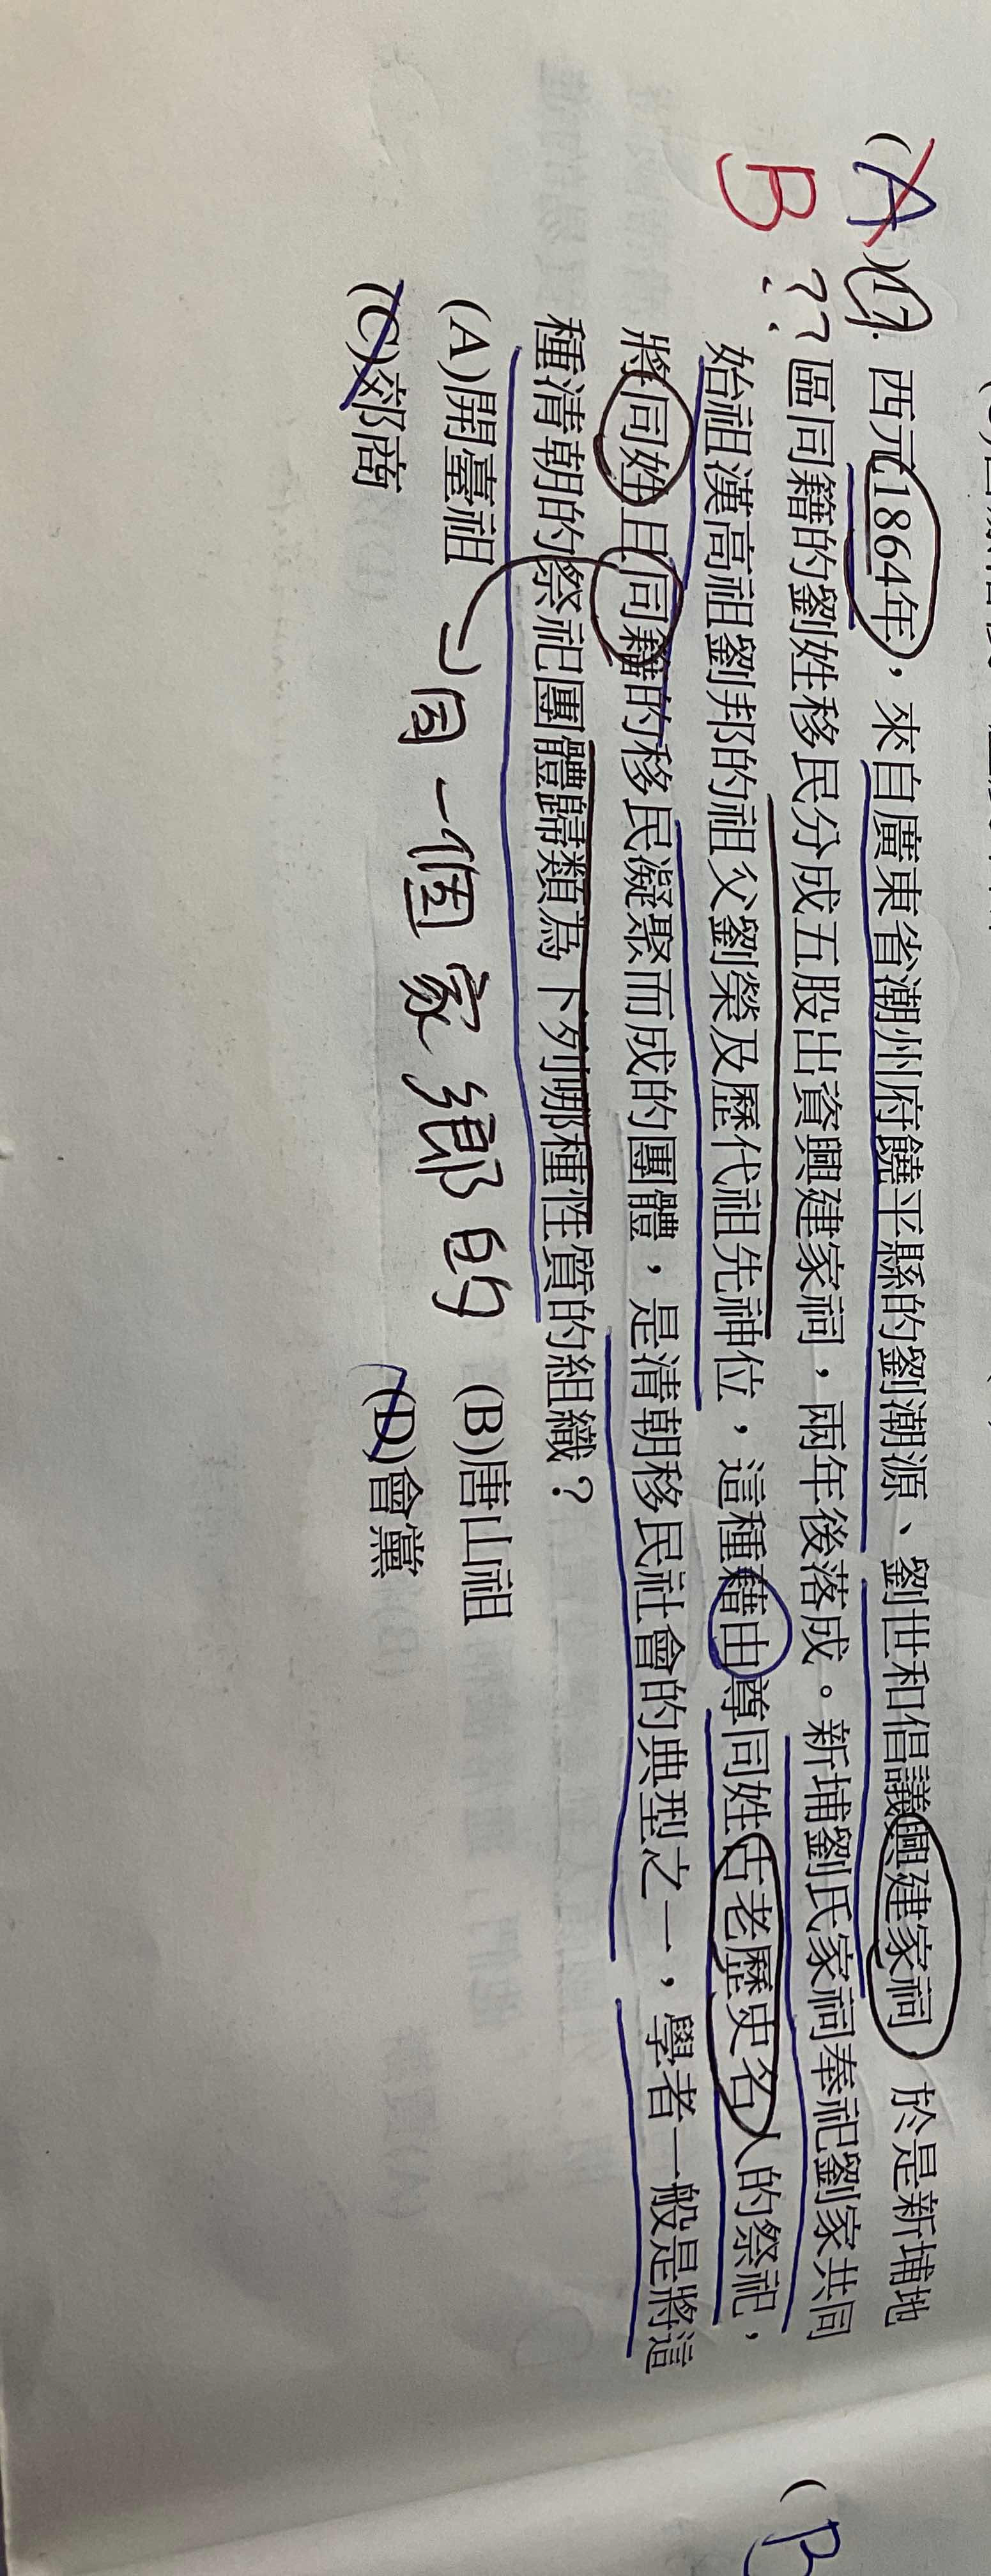 (A)17. 西元1864年，來自廣東省潮州府饒平縣的劉潮源、劉世和倡議興建家祠，於是新埔地
B ?? 區同籍的劉姓移民分成五股出資興建家祠，兩年後落成。新埔劉氏家祠奉祀劉家共同
始祖漢高祖劉邦的祖父劉榮及歷代祖先神位，這種藉由尊同姓古老歷史名人的祭祀，
將同姓且同籍的移民凝聚而成的團體，是清朝移民社會的典型之一，學者一般是將這
種清朝的祭祀團體歸類為下列哪種性質的組織？
(A)開臺祖 (B)唐山祖
同一個家鄉的
(C)郊商 (D)會黨
(B